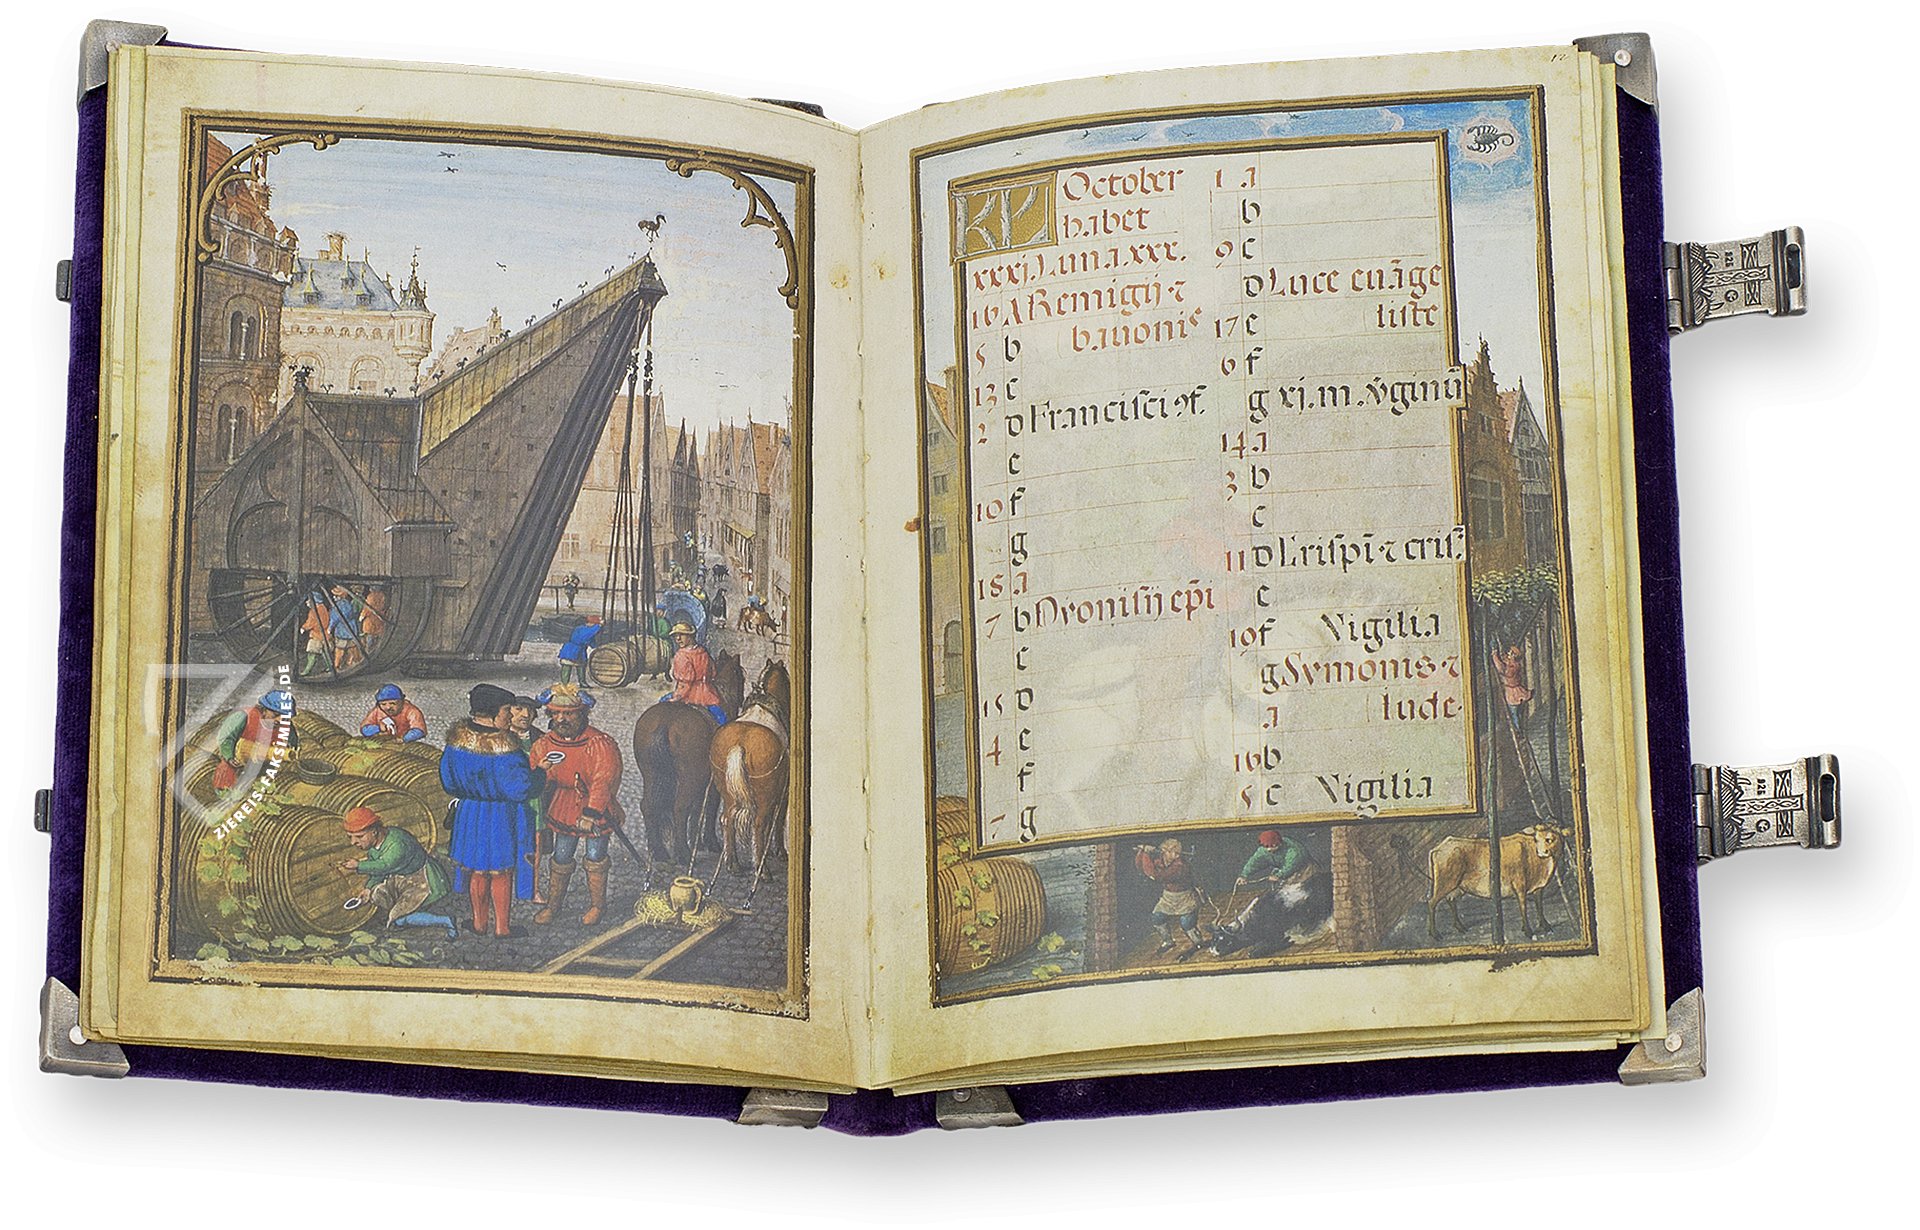 ZIEREIS-FAKSIMILES.DE
12
KL October
habet
xxxj. Luna xxx.
16 A Remigij ⁊
bauonis
5 b
13 c
2 D Francisci ꝯf.
e
10 f
g
18 a
7 b Dyonisij ep̄i
c
15 D
4 e
f
7 g
1 a
b
9 c
D Luce euāge
liste
17 e
6 f
g xj. m. v̄ginū
14 a
3 b
c
11 D Crispī ⁊ cris.
e
19 f Vigilia
g Symonis ⁊
a Iude.
16 b
5 c Vigilia
925
925